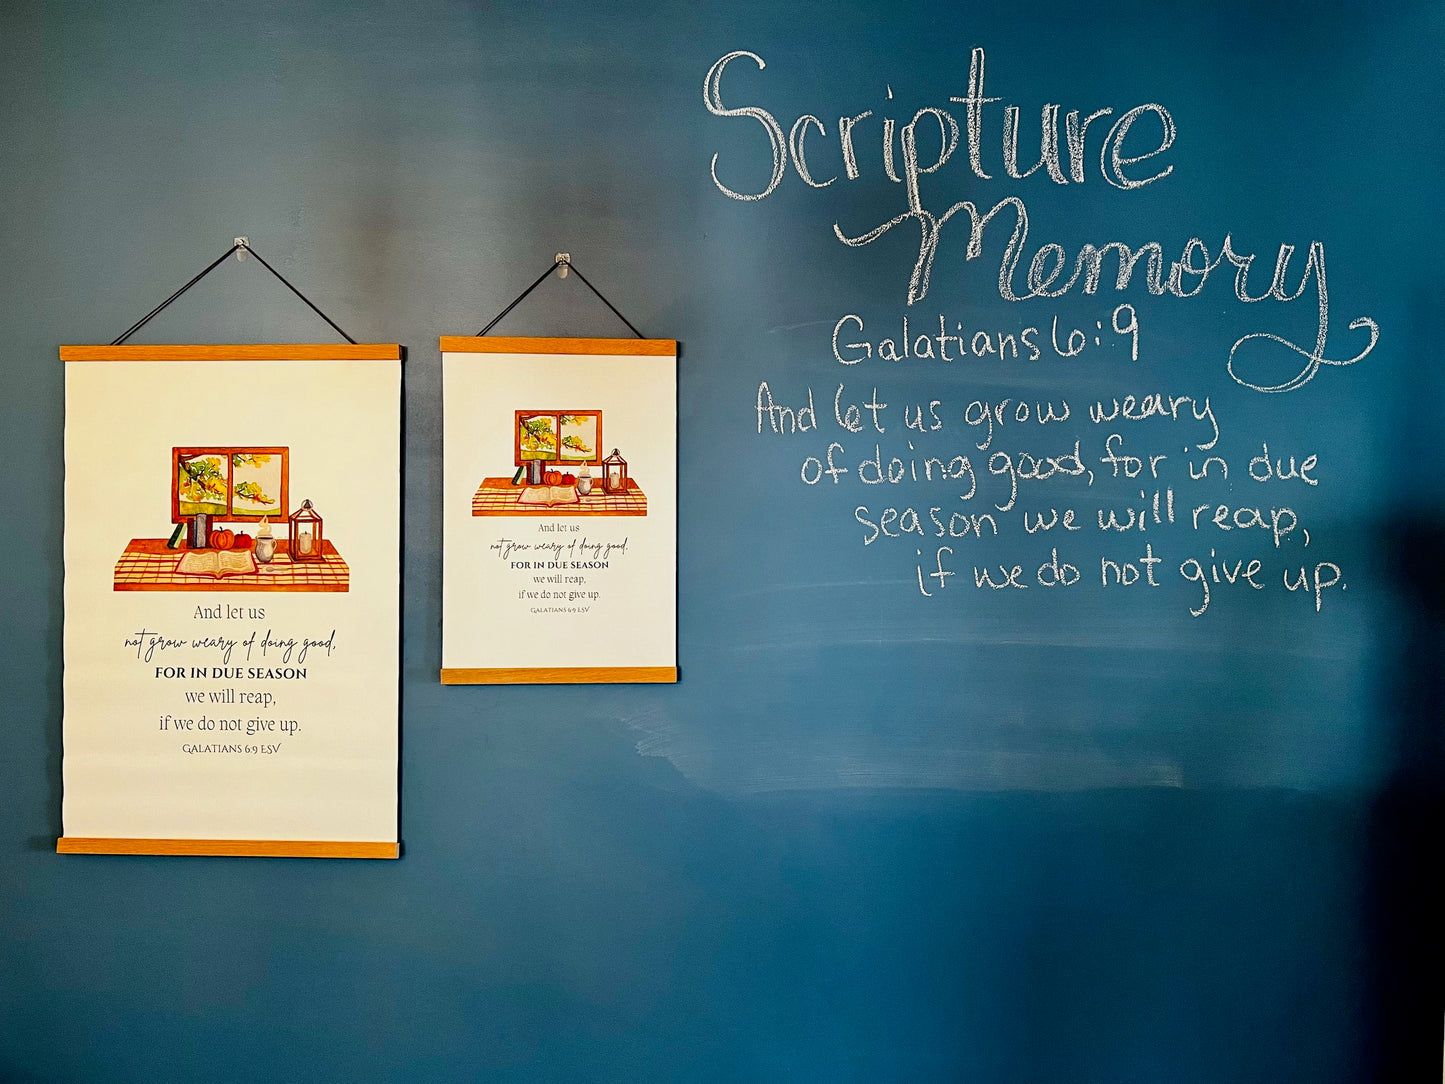 And let us
not grow weary of doing good,
FOR IN DUE SEASON
we will reap,
if we do not give up.
GALATIANS 6:9 ESV
And let us
not grow weary of doing good,
FOR IN DUE SEASON
we will reap,
if we do not give up.
GALATIANS 6:9 ESV
Scripture
Memory
Galatians 6:9
And let us grow weary
of doing good, for in due
season we will reap,
if we do not give up.